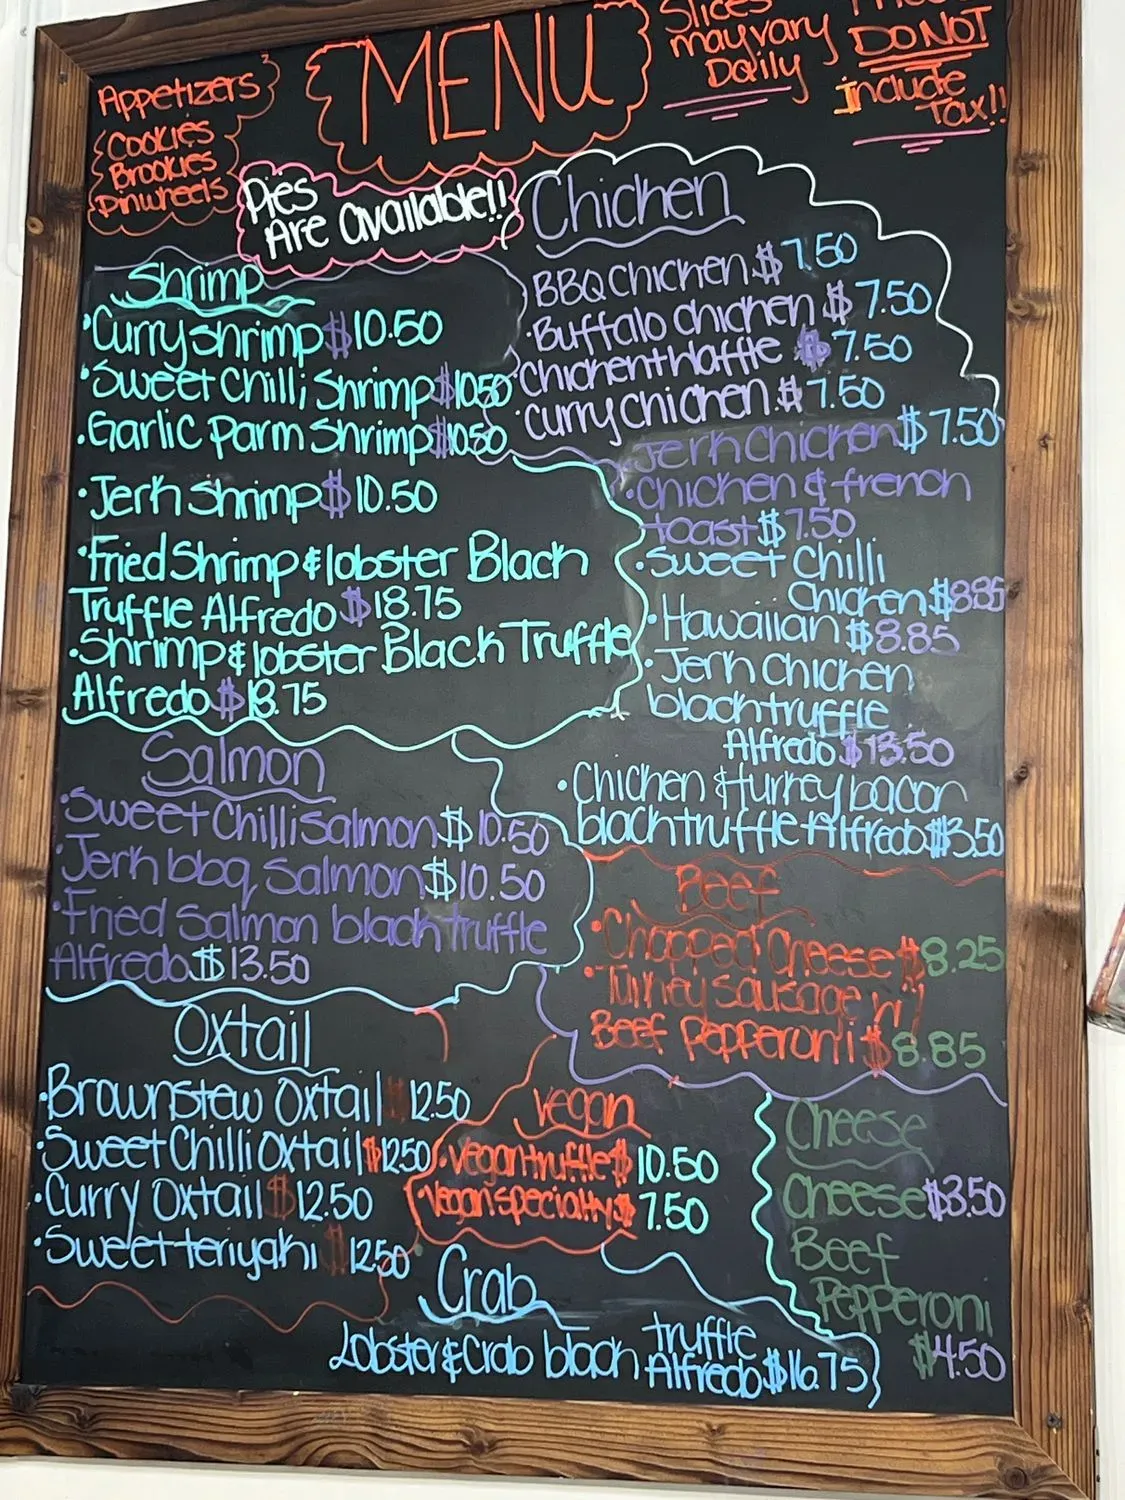 MENU
Slices
may vary
Daily
DO NOT
Include
Tax!!
Appetizers
Cookies
Brookies
Pinwheels
Pies
Are available!!
Shrimp
•Curry Shrimp $10.50
•Sweet Chilli Shrimp $10.50
•Garlic Parm Shrimp $10.50
•Jerk Shrimp $10.50
•Fried Shrimp & lobster Black
Truffle Alfredo $18.75
•Shrimp & lobster Black Truffle
Alfredo $18.75
Chicken
BBQ Chicken $7.50
•Buffalo Chicken $7.50
•Chicken + Waffle $7.50
•Curry Chicken $7.50
Jerk Chicken $7.50
•Chicken & french
toast $7.50
•Sweet Chilli
Chicken $8.85
•Hawaiian $8.85
•Jerk Chicken
black truffle
Alfredo $13.50
•Chicken + turkey bacon
black truffle Alfredo $13.50
Salmon
•Sweet Chilli Salmon $10.50
•Jerk bbq Salmon $10.50
•Fried Salmon black truffle
Alfredo $13.50
Beef
•Chopped Cheese $8.25
•Turkey Sausage n'
Beef Pepperoni $8.85
Oxtail
•Brownstew Oxtail 12.50
•Sweet Chilli Oxtail $12.50
•Curry Oxtail $12.50
•Sweet teriyaki $12.50
Vegan
•Vegan truffle $10.50
Vegan specialty $7.50
Cheese
Cheese $3.50
Beef
Pepperoni
$4.50
Crab
Lobster & Crab black truffle
Alfredo $16.75